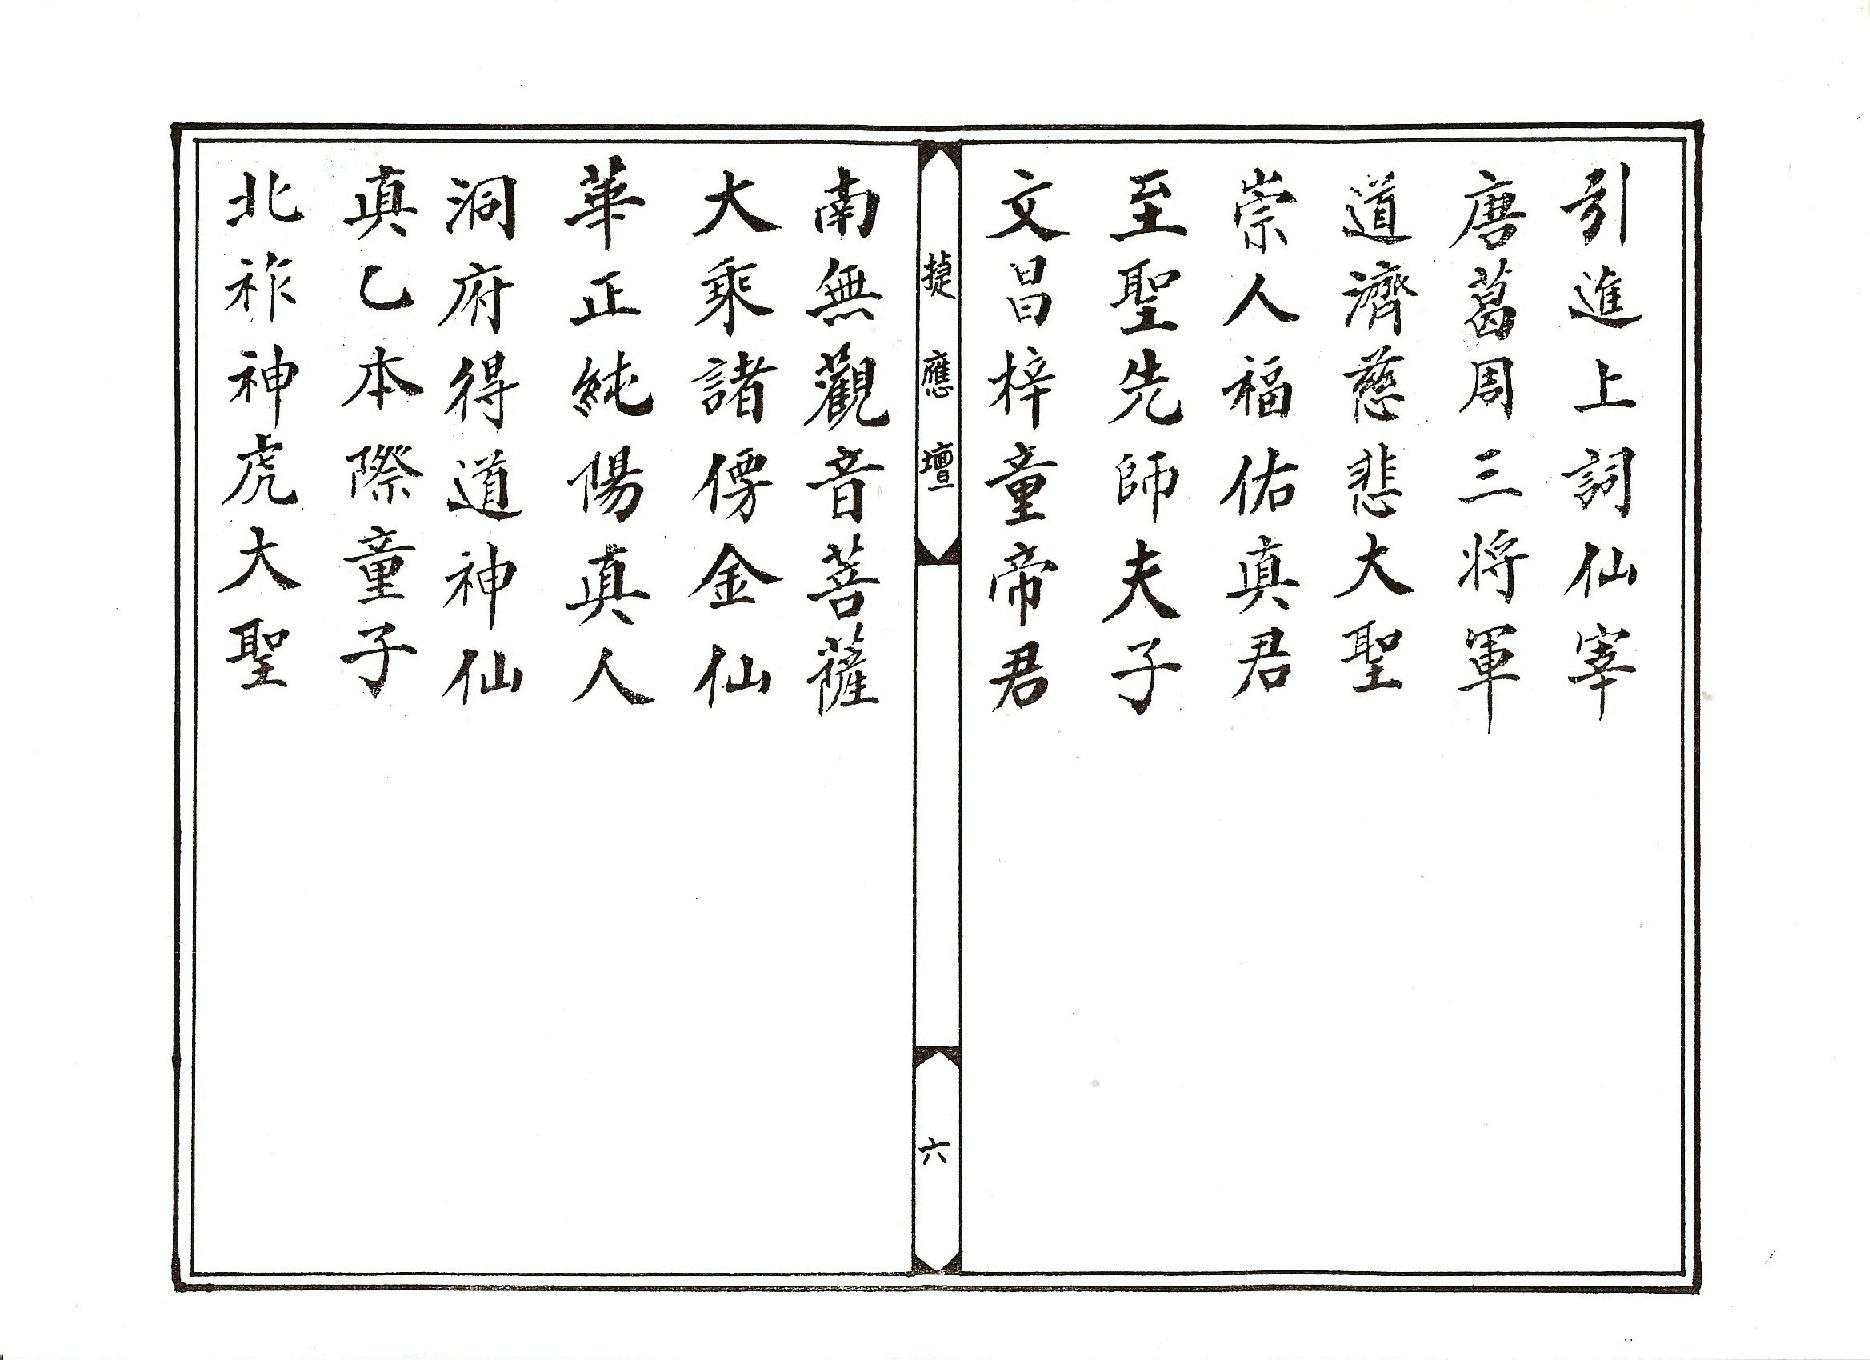 引進上詞仙宰
唐葛周三将軍
道濟慈悲大聖
崇人福佑真君
至聖先師夫子
文昌梓童帝君
捷應壇
六
南無觀音菩薩
大乘諸僊金仙
華正純陽真人
洞府得道神仙
真乙本際童子
北祚神虎大聖